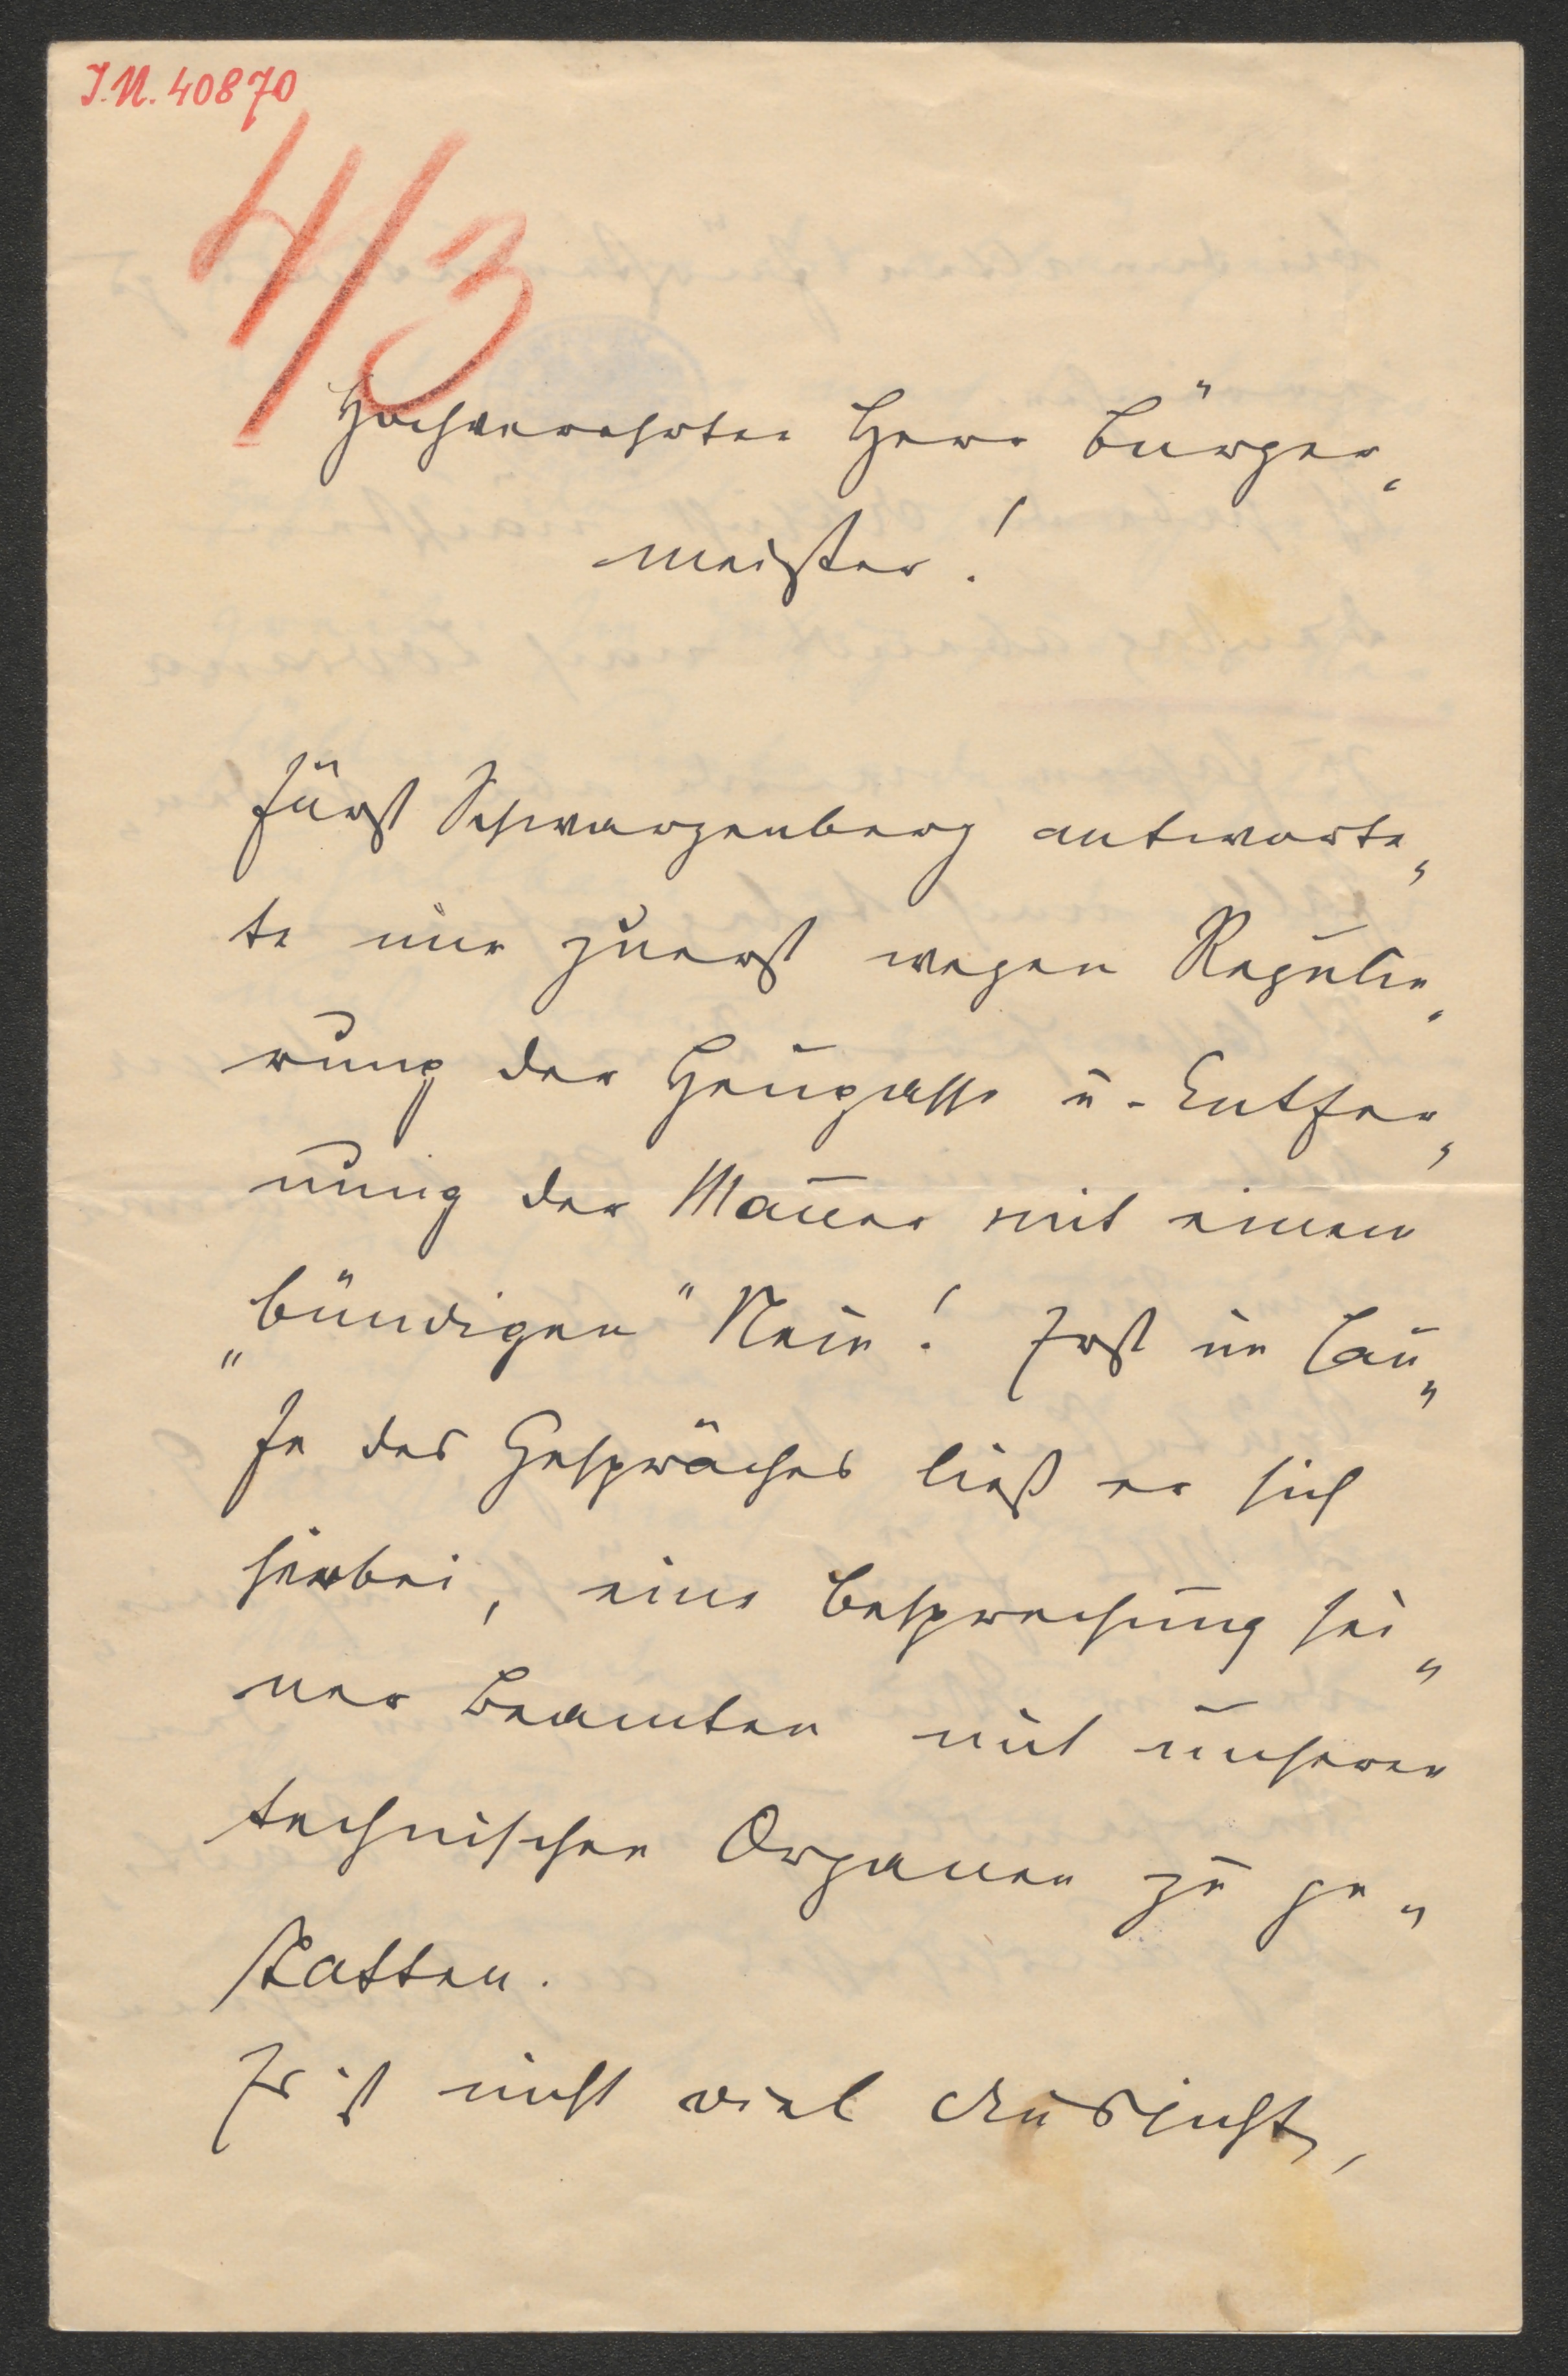 J.N. 40870
4/3
Hochverehrter Herr Bürger„
meister!
Fürst Schwarzenberg antworte„
te mir zuerst wegen Regulie„
rung der Heugasse u. Entfer„
nung der Mauer mit einem
„bündigen" Nein! Erst im Lau„
fe des Gespräches ließ er sich
hierbei, eine Besprechung sei„
ner Beamten mit unseren
technischen Organen zu ge„
statten.
Es ist nicht viel Aussicht,